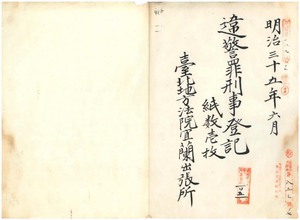 明治三十五年六月
違警罪刑事登記
紙数壱枚
臺北地方法院宜蘭出張所